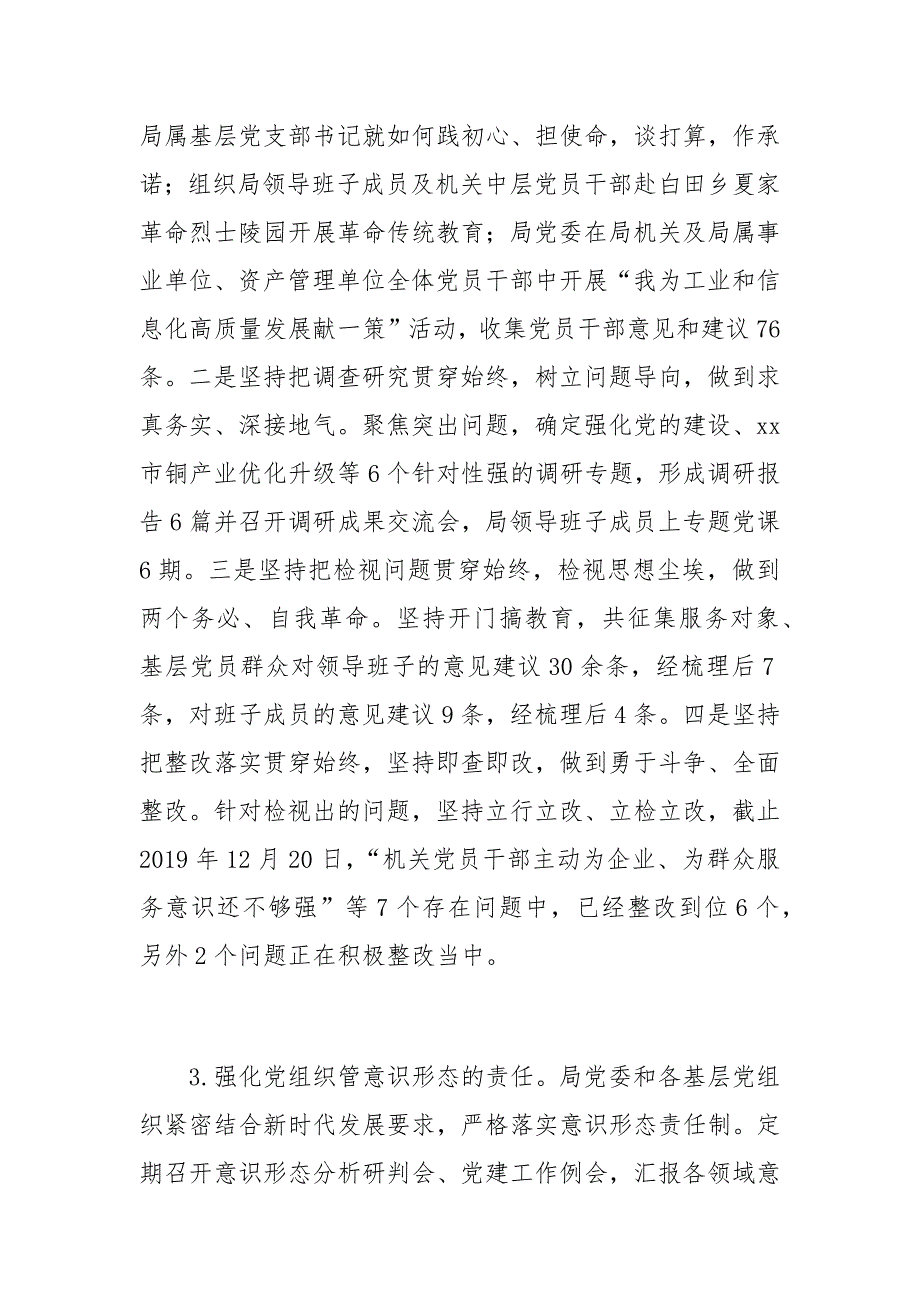 局属基层党支部书记就如何践初心、担使命，谈打算，作承
诺；组织局领导班子成员及机关中层党员干部赴白田乡夏家
革命烈士陵园开展革命传统教育；局党委在局机关及局属事
业单位、资产管理单位全体党员干部中开展“我为工业和信
息化高质量发展献一策”活动，收集党员干部意见和建议 76
条。二是坚持把调查研究贯穿始终，树立问题导向，做到求
真务实、深接地气。聚焦突出问题，确定强化党的建设、xx
市铜产业优化升级等 6 个针对性强的调研专题，形成调研报
告 6 篇并召开调研成果交流会，局领导班子成员上专题党课
6 期。三是坚持把检视问题贯穿始终，检视思想尘埃，做到
两个务必、自我革命。坚持开门搞教育，共征集服务对象、
基层党员群众对领导班子的意见建议 30 余条，经梳理后 7
条，对班子成员的意见建议 9 条，经梳理后 4 条。四是坚持
把整改落实贯穿始终，坚持即查即改，做到勇于斗争、全面
整改。针对检视出的问题，坚持立行立改、立检立改，截止
2019 年 12 月 20 日，“机关党员干部主动为企业、为群众服
务意识还不够强”等 7 个存在问题中，已经整改到位 6 个，
另外 2 个问题正在积极整改当中。
3.强化党组织管意识形态的责任。局党委和各基层党组
织紧密结合新时代发展要求，严格落实意识形态责任制。定
期召开意识形态分析研判会、党建工作例会，汇报各领域意